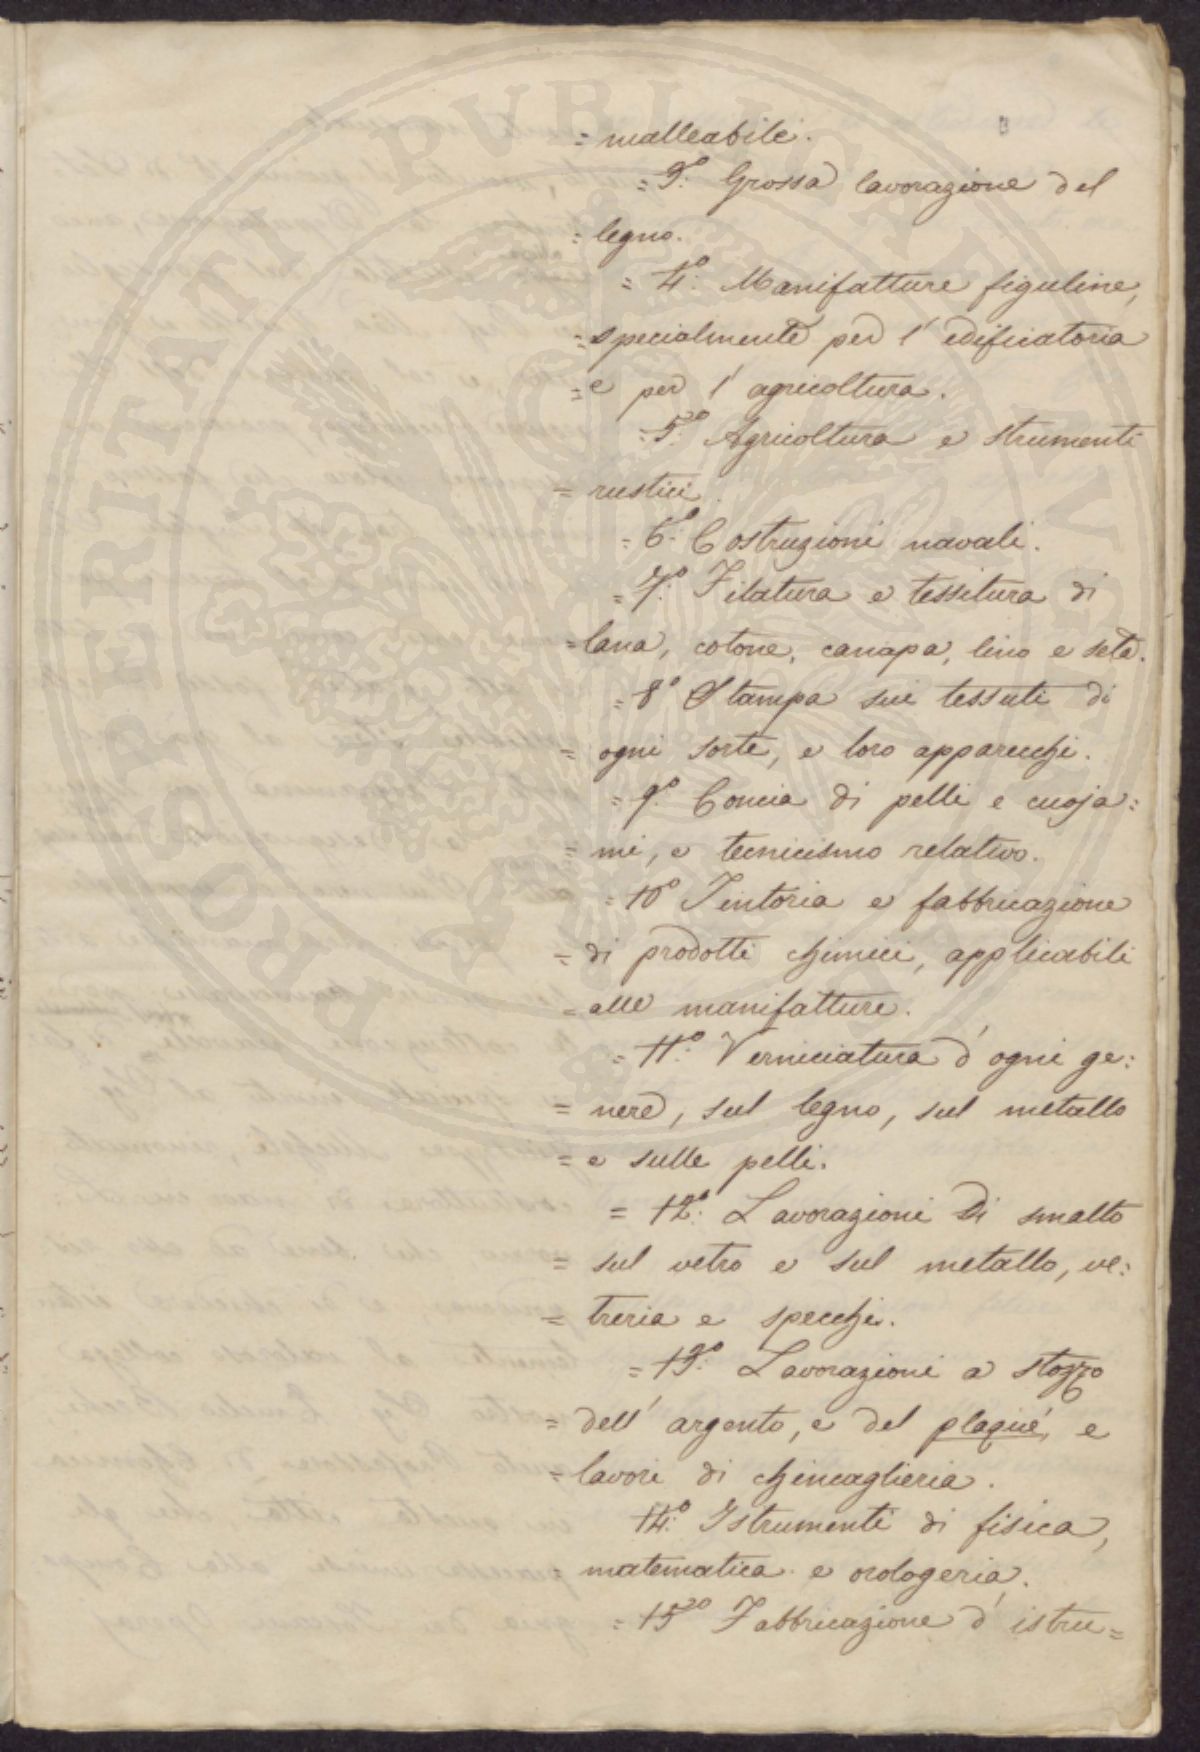 = malleabile.
= 3º: Grossa lavorazione del
= legno.
= 4º: Manifatture figuline,
= specialmente per l' edificatoria
= e per l' agricoltura.
= 5º: Agricoltura e strumenti
= rustici.
= 6º: Costruzioni navali.
= 7º: Filatura e tessitura di
= lana, cotone, canapa, lino e seta.
= 8º Stampa sui tessuti di
= ogni sorte, e loro apparecchi.
= 9º: Concia di pelli e cuoja=
= mi, e tecnicismo relativo.
= 10º Tintoria e fabbricazione
= di prodotti chimici, applicabili
= alle manifatture.
= 11º: Verniciatura d' ogni ge=
= nere, sul legno, sul metallo
= e sulle pelli.
= 12º: Lavorazioni di smalto
= sul vetro e sul metallo, ve=
= treria e specchi.
= 13º: Lavorazioni a stozzo
= dell' argento, e del plaqué, e
= lavori di chincaglieria.
14º: Istrumenti di fisica,
= matematica e orologeria.
= 15º Fabbricazione d' istru=
PROSPERITATI PUBLICAE AUGENDAE